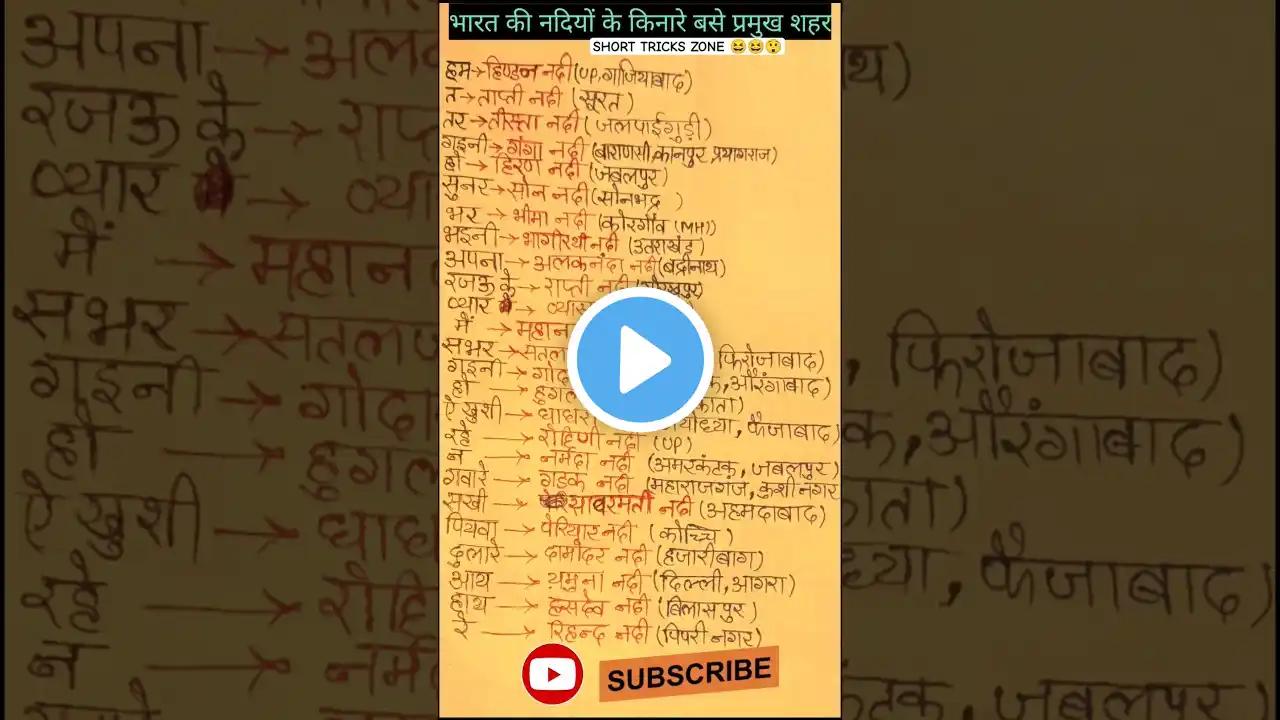 भारत की नदियों के किनारे बसे प्रमुख शहर
SHORT TRICKS ZONE 😆😆😲
हम→हिण्डन नदी(UP,गाजियाबाद)
त→ताप्ती नदी (सूरत)
तर→तीस्ता नदी (जलपाईगुड़ी)
गइनी→गंगा नदी (बाराणसी,कानपुर,प्रयागराज)
हो→हिरण नदी (जबलपुर)
सुनर→सोन नदी(सोनभद्र )
भर→भीमा नदी (कोरगाँव (MH))
भइनी→भागीरथी नदी (उतराखंड)
अपना→अलकनंदा नदी(बद्रीनाथ)
रजऊ के→राप्ती नदी (गोरखपुर
प्यार→व्यास
में→महान
सभर→सतल फिरोजाबाद)
गइनी→गोद क,औरंगाबाद)
हो→हुगल काता)
ऐ खुशी→घाघर योध्या, फैजाबाद)
रहे→रोहिणी नदी (UP)
न→नर्मदा नदी (अमरकंटक, जबलपुर)
गवारे→गंडक नदी (महाराजगंज, कुशीनगर
सखी→साबरमती नदी (अहमदाबाद)
पियवा→पेरियार नदी (कोच्चि)
दुलारे→दामोदर नदी (हजारीबाग)
आय→यमुना नदी (दिल्ली,आगरा)
हाय→हसदेव नदी (बिलासपुर)
रे→रिहन्द नदी (पिपरी नगर)
SUBSCRIBE